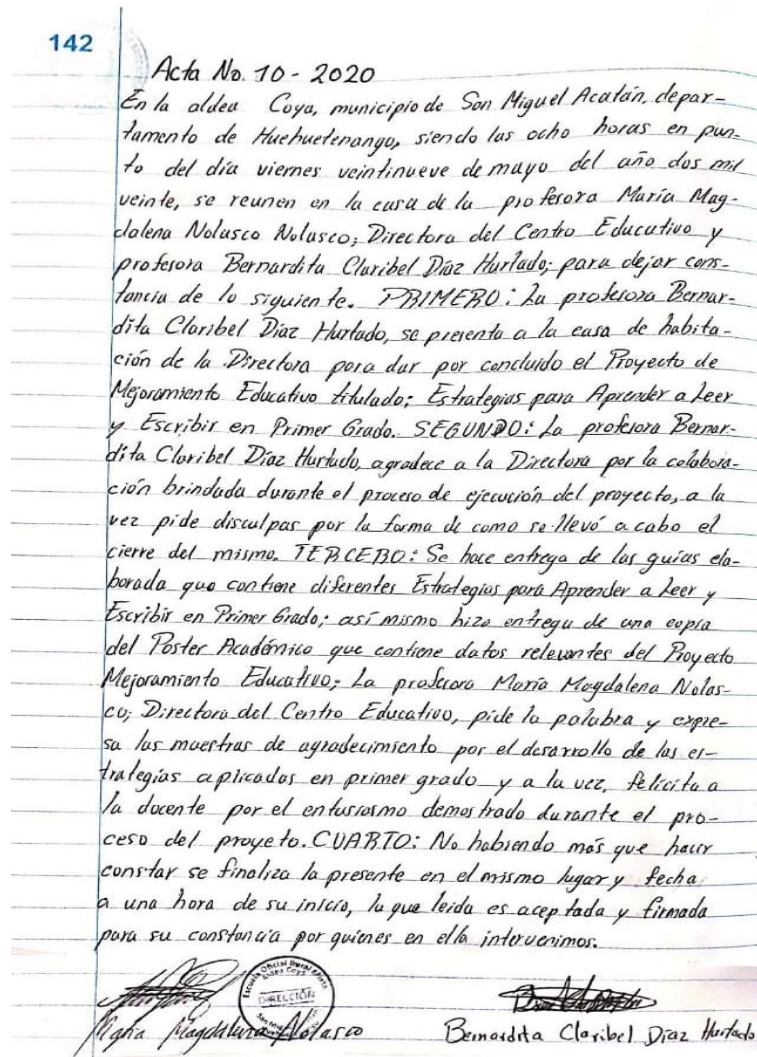 142
Acta No. 10-2020
En la aldea Coya, municipio de San Miguel Acatán, depar-
tamento de Huehuetenango, siendo las ocho horas en pun-
to del día viernes veintinueve de mayo del año dos mil
veinte, se reunen en la casa de la profesora María Mag-
dalena Nolasco Nolasco; Directora del Centro Educativo y
profesora Bernardita Claribel Díaz Hurtado; para dejar cons-
tancia de lo siguiente. PRIMERO: La profesora Bernar-
dita Claribel Díaz Hurtado, se presenta a la casa de habita-
ción de la Directora para dar por concluido el Proyecto de
Mejoramiento Educativo titulado: Estrategias para Aprender a Leer
y Escribir en Primer Grado. SEGUNDO: La profesora Bernar-
dita Claribel Díaz Hurtado, agradece a la Directora por la colabora-
ción brindada durante el proceso de ejecución del proyecto, a la
vez pide disculpas por la forma de como se llevó a cabo el
cierre del mismo. TERCERO: Se hace entrega de las guías ela-
borada que contiene diferentes Estrategias para Aprender a Leer y
Escribir en Primer Grado; así mismo hizo entrega de una copia
del Poster Académico que contiene datos relevantes del Proyecto
Mejoramiento Educativo; La profesora María Magdalena Nolas-
co; Directora del Centro Educativo, pide la palabra y expre-
sa las muestras de agradecimiento por el desarrollo de las es-
trategias aplicadas en primer grado y a la vez, felicita a
la docente por el entusiasmo demostrado durante el pro-
ceso del proyeto. CUARTO: No habiendo más que hacer
constar se finaliza la presente en el mismo lugar y fecha
a una hora de su inicio, la que leída es aceptada y firmada
para su constancia por quienes en ella intervenimos.
Escuela Oficial Rural Mixta
Aldea Coya
DIRECCIÓN
María Magdalena Nolasco
Bernardita Claribel Díaz Hurtado